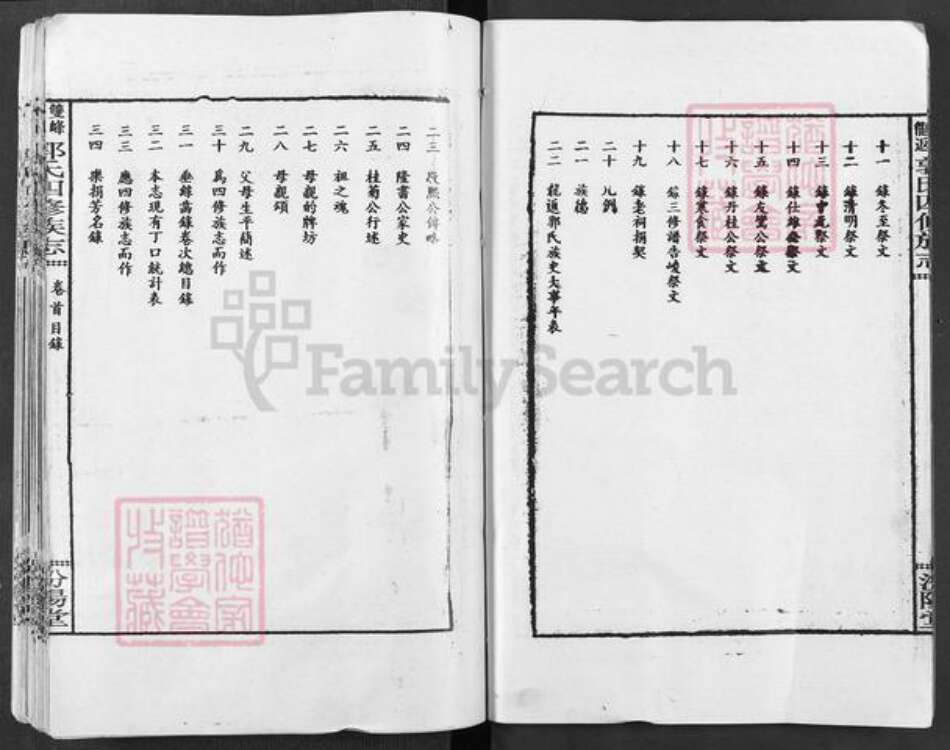 十一　錄冬至祭文
十二　錄清明祭文
十三　錄會
祭文
十四　錄仕
祭文
十五　錄友鸞公祭文
十六　錄丹桂公祭文
十七　錄寒食祭文
十八　錄三修譜告竣祭文
十九　錄老祠捐契
二十　凡例
二一　族德
二二　龍
郭氏族史大事年表
二三
二四　隆書公家史
二五　桂菊公行述
二六　祖之魂
二七　母親的牌坊
二八　母親頌
二九　父母生平簡述
三十　為四修族志而作
三一　垂錄萬錄卷次總目錄
三二　本志現有丁口統計表
三三　應四修族志而作
三四　樂捐芳名錄
雙峰
郭氏四修族志
卷首目錄
汾陽堂
FamilySearch